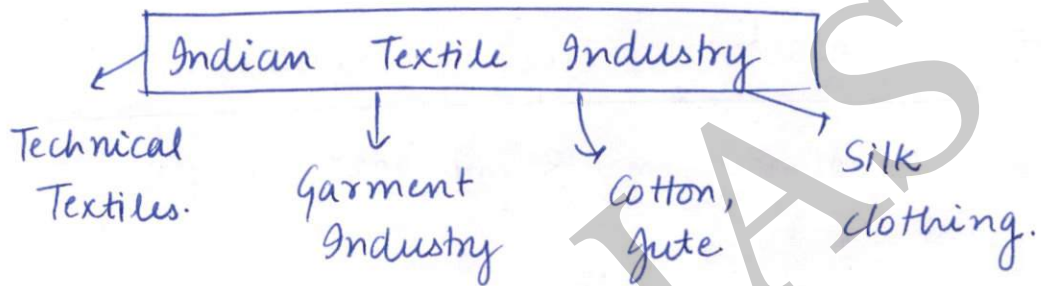 Indian Textile Industry
Technical
Textiles.
Garment
Industry
Cotton,
Jute
Silk
clothing.
IAS